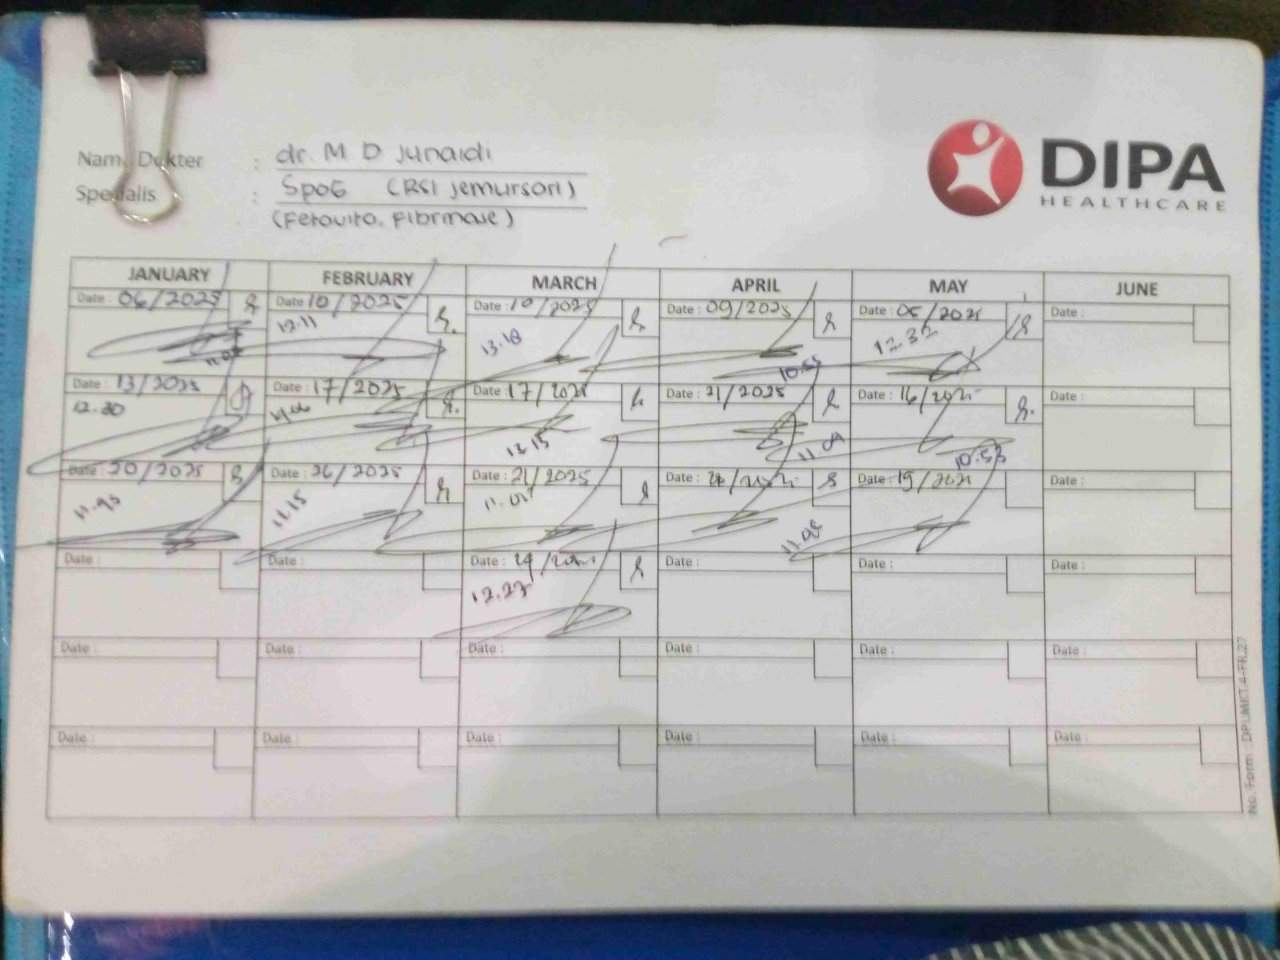 Nama Dokter : dr. M D Junaidi
Spesialis : SpOG (RSI Jemursari)
(Ferovito, Fibrmose)
DIPA
HEALTHCARE
JANUARY FEBRUARY MARCH APRIL MAY JUNE
Date : 06/2025 Date : 10/2025 Date : 10/2025 Date : 09/2025 Date : 05/2025 Date :
12.11 13.18 10.55 12.32
Date : 13/2025 Date : 17/2025 Date : 17/2025 Date : 21/2025 Date : 16/2025 Date :
12.20 12.15 11.09 10.53
Date : 20/2025 Date : 26/2025 Date : 21/2025 Date : Date : 19/2025 Date :
11.15 11.01
Date : Date : Date : 24/2025 Date : Date : Date :
12.27
Date : Date : Date : Date : Date : Date :
Date : Date : Date : Date : Date : Date :
No. Form : DPI.MKT.4-FR.27